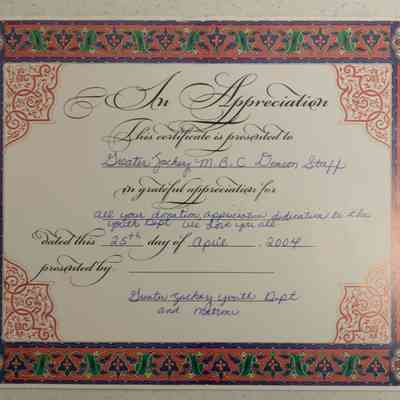 In Appreciation
This certificate is presented to
Greater Zackey M.B.C Deacon Staff
in grateful appreciation for
All your donation, appreciation, dedication to the
Youth Dept We Love you all
dated this 25th day of April , 2004
presented by
Greater Zackey Youth Dept
and Matron